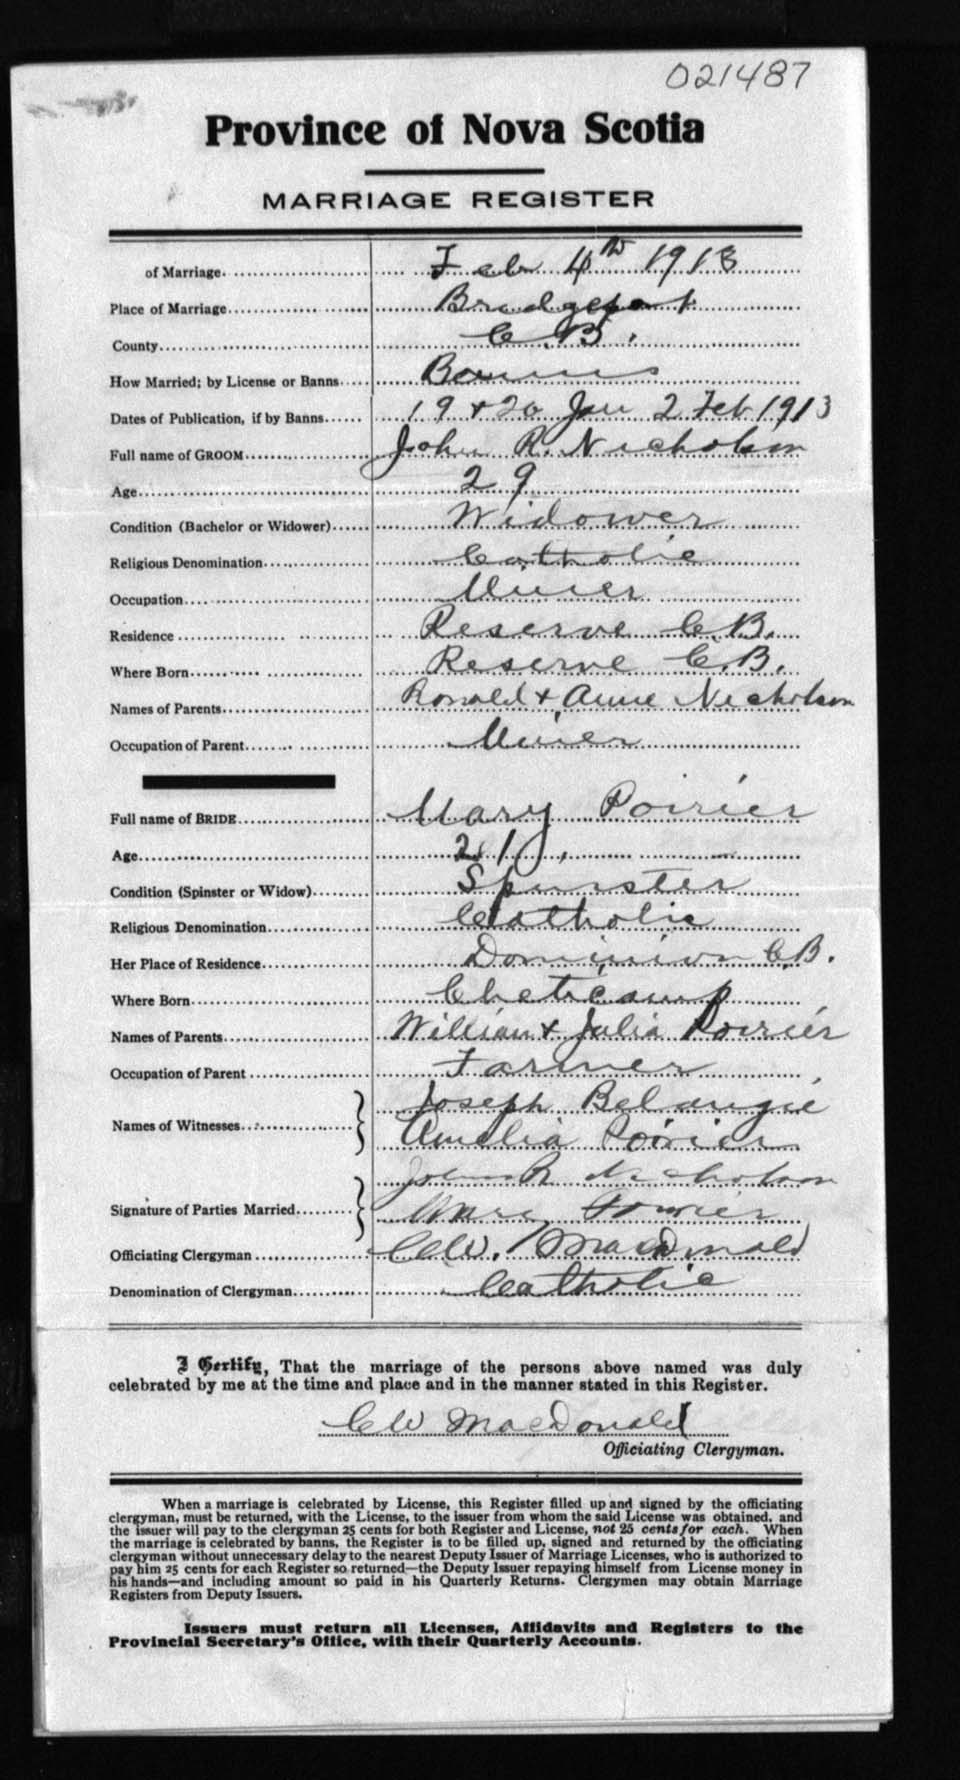 021487
Province of Nova Scotia
MARRIAGE REGISTER
of Marriage Feb 4th 1913
Place of Marriage Bridgeport
County C.B.
How Married; by License or Banns Banns
Dates of Publication, if by Banns 19 + 26 Jan 2 Feb 1913
Full name of GROOM John R. Nicholson
Age 29
Condition (Bachelor or Widower) Widower
Religious Denomination Catholic
Occupation Miner
Residence Reserve C.B.
Where Born Reserve C.B.
Names of Parents Ronald + Annie Nicholson
Occupation of Parent Miner
Full name of BRIDE Mary Poirier
Age 21
Condition (Spinster or Widow) Spinster
Religious Denomination Catholic
Her Place of Residence Dominion C.B.
Where Born Cheticamp
Names of Parents William + Julia Poirier
Occupation of Parent Farmer
Names of Witnesses Joseph Belangie
Amelia Poirier
Signature of Parties Married John R Nicholson
Mary Poirier
Officiating Clergyman C.W. MacDonald
Denomination of Clergyman Catholic
I Certify, That the marriage of the persons above named was duly
celebrated by me at the time and place and in the manner stated in this Register.
CW MacDonald
Officiating Clergyman.
When a marriage is celebrated by License, this Register filled up and signed by the officiating
clergyman, must be returned, with the License, to the issuer from whom the said License was obtained, and
the issuer will pay to the clergyman 25 cents for both Register and License, not 25 cents for each. When
the marriage is celebrated by banns, the Register is to be filled up, signed and returned by the officiating
clergyman without unnecessary delay to the nearest Deputy Issuer of Marriage Licenses, who is authorized to
pay him 25 cents for each Register so returned—the Deputy Issuer repaying himself from License money in
his hands—and including amount so paid in his Quarterly Returns. Clergymen may obtain Marriage
Registers from Deputy Issuers.
Issuers must return all Licenses, Affidavits and Registers to the
Provincial Secretary's Office, with their Quarterly Accounts.